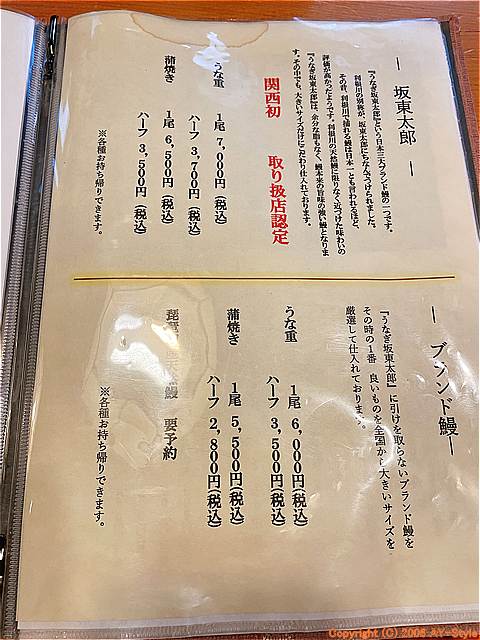 ― 坂東太郎 ―
『うなぎ坂東太郎』という日本三大ブランド鰻の一つです。
利根川の別称が、坂東太郎にちなんでつけられました。
その昔、利根川で捕れる鰻は日本一とも言われるほど、
評価が高かったようです。利根川の天然鰻に限りなく近づけた味わいの
『うなぎ坂東太郎』は、余分な脂もなく、鰻本来の旨味の強い鰻となりま
す。その中でも、大きいサイズだけにこだわり仕入れております。
関西初 取り扱店認定
うな重
1尾 7,000円(税込)
ハーフ 3,700円(税込)
蒲焼き
1尾 6,500円(税込)
ハーフ 3,500円(税込)
※各種お持ち帰りできます。
― ブランド鰻 ―
『うなぎ坂東太郎』に引けを取らないブランド鰻を
その時の1番 良いものを全国から大きいサイズを
厳選して仕入れております。
うな重
1尾 6,000円(税込)
ハーフ 3,500円(税込)
蒲焼き
1尾 5,500円(税込)
ハーフ 2,800円(税込)
琵琶 天然鰻 要予約
※各種お持ち帰りできます。
Copyright (C) 2006 AY-Style